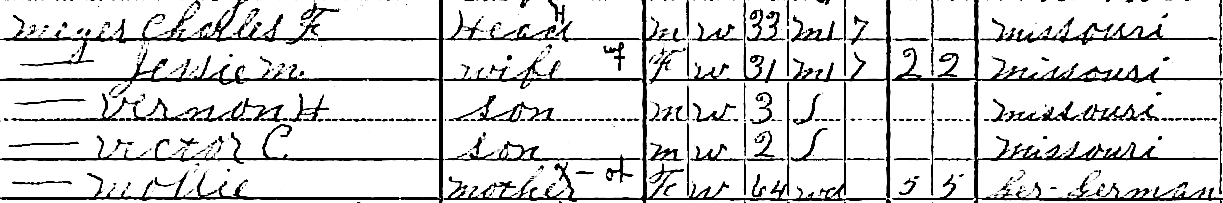 Meyer Charles F Head M W 33 M1 7 Missouri
— Jessie M. wife F W 31 M1 7 2 2 Missouri
— Vernon H son M W 3 S Missouri
— Victor C. son M W 2 S Missouri
— Mollie mother F W 64 Wd 5 5 Ger-German